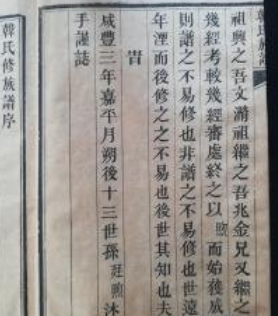 祖興之吾文瀚祖繼之吾兆金兄又繼之
幾經考較幾經審處終之以敗而始獲成
則譜之不易修也非譜之不易修也世遠
年湮而後修之之不易也後世其知也夫
旹
咸豐三年嘉平月朔後十三世孫廷煦沐
手謹誌
韓氏修族譜序